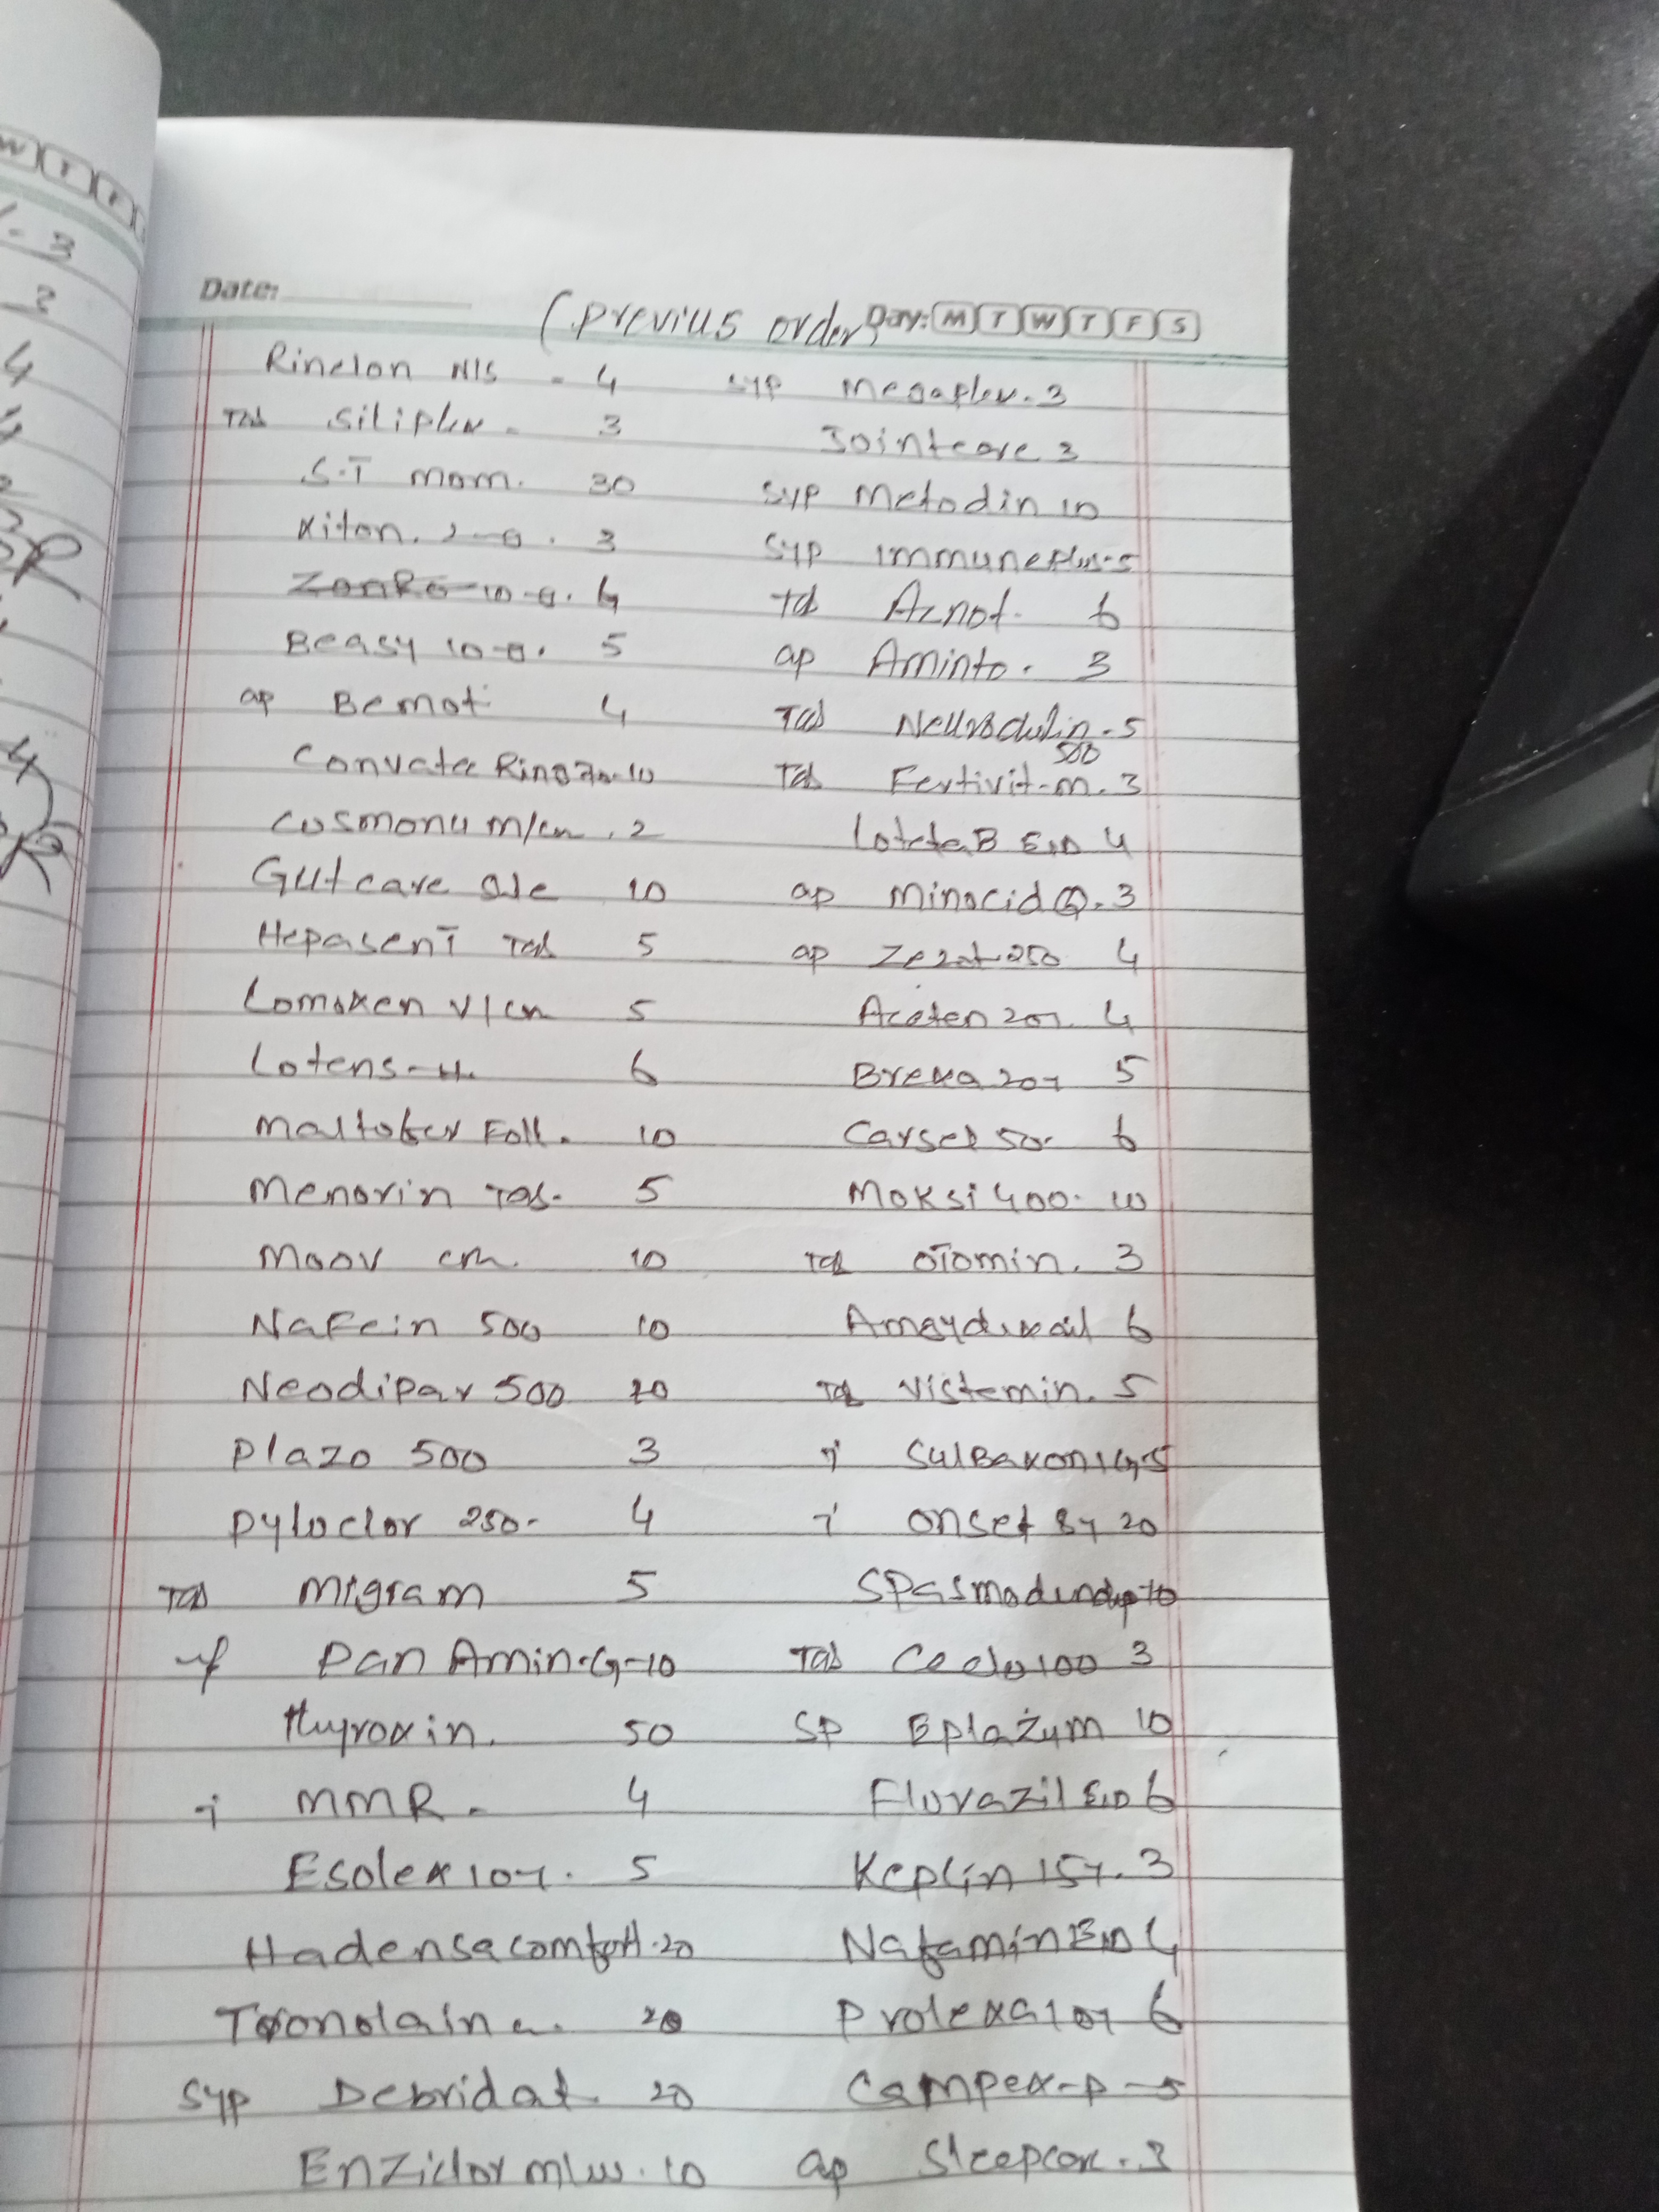 Date:
(Previus order)
Day: M T W T F S
Rinelon N/S - 4
Tab Siliplex - 3
S.T mom. 30
Xiton. 2-0. 3
10-0. 4
Beasy 10-0. 5
ap Bemot 4
Convatec Ring 70-10
Cosmonu m/cn. 2
Gutcare 10
Hepasent Tab 5
Lomoxen V/cn 5
Lotens-H. 6
Maltofer Foll. 10
Menorin Tab. 5
Moov cm. 10
NaFcin 500 10
Neodipar 500 20
Plazo 500 3
Pyloclor 250- 4
Tab Migram 5
Pan Amin-G-10
thyroxin. 50
i MMR. 4
Esolex 10y. 5
Hadensa comfort. 20
20
Syp Debridat. 20
Enziclor m/w. 10
syp Megaplex. 3
Jointcare 3
Syp Metodin 10
Syp Immune Plus-5
Tab Aznot. 6
ap Aminto. 3
Tab Neurodulin-5
500
Tab Fertivit-m. 3
B E/D 4
ap Minocid Q. 3
ap 250 4
20y. 4
Brexa 20y 5
Carsel 50. 6
Moksi 400. 10
Tab OTomin. 3
6
Tab Vistemin. 5
i SulBaxon 1G, 5
i onset 8y 20
Tab 100 3
SP Eplazym 10
Fluvazil E/D 6
Keplin 15y. 3
Nafamin E/D 4
Prolexa 10y 6
Campex-p-5
ap 3